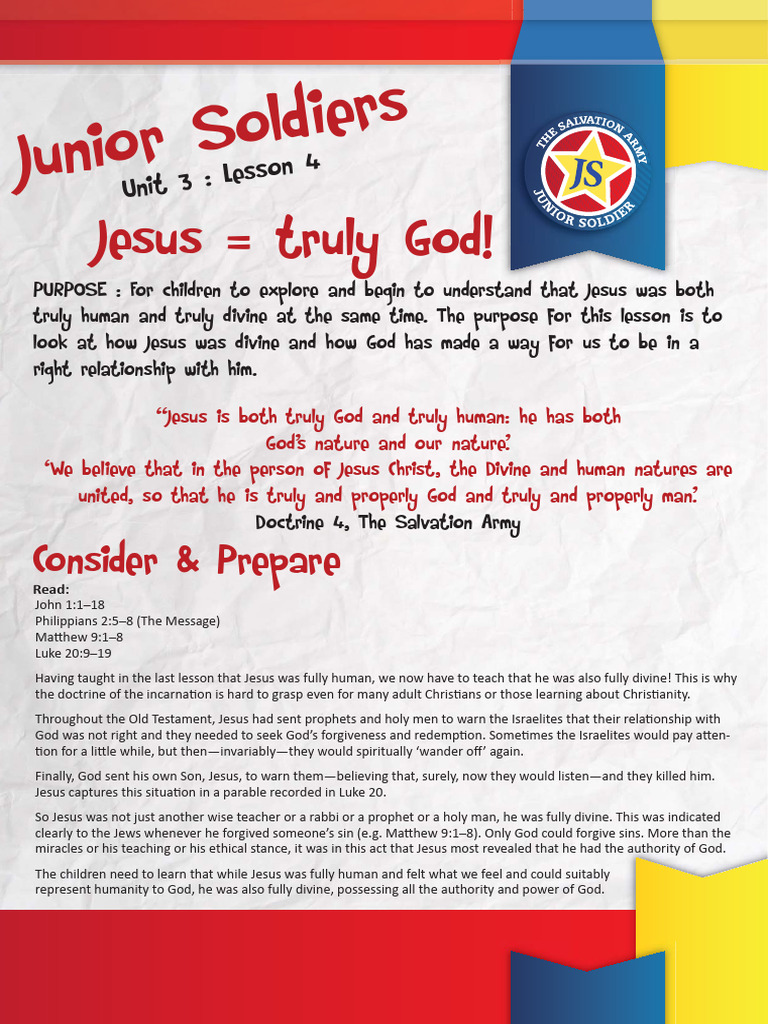 Junior Soldiers
Unit 3 : Lesson 4
THE SALVATION ARMY
JS
JUNIOR SOLDIER
Jesus = truly God!
PURPOSE : For children to explore and begin to understand that Jesus was both
truly human and truly divine at the same time. The purpose for this lesson is to
look at how Jesus was divine and how God has made a way for us to be in a
right relationship with him.
“Jesus is both truly God and truly human: he has both
God’s nature and our nature.’
‘We believe that in the person of Jesus Christ, the Divine and human natures are
united, so that he is truly and properly God and truly and properly man.’
Doctrine 4, The Salvation Army
Consider & Prepare
Read:
John 1:1–18
Philippians 2:5–8 (The Message)
Matthew 9:1–8
Luke 20:9–19
Having taught in the last lesson that Jesus was fully human, we now have to teach that he was also fully divine! This is why
the doctrine of the incarnation is hard to grasp even for many adult Christians or those learning about Christianity.
Throughout the Old Testament, Jesus had sent prophets and holy men to warn the Israelites that their relationship with
God was not right and they needed to seek God’s forgiveness and redemption. Sometimes the Israelites would pay atten-
tion for a little while, but then—invariably—they would spiritually ‘wander off’ again.
Finally, God sent his own Son, Jesus, to warn them—believing that, surely, now they would listen—and they killed him.
Jesus captures this situation in a parable recorded in Luke 20.
So Jesus was not just another wise teacher or a rabbi or a prophet or a holy man, he was fully divine. This was indicated
clearly to the Jews whenever he forgived someone’s sin (e.g. Matthew 9:1–8). Only God could forgive sins. More than the
miracles or his teaching or his ethical stance, it was in this act that Jesus most revealed that he had the authority of God.
The children need to learn that while Jesus was fully human and felt what we feel and could suitably
represent humanity to God, he was also fully divine, possessing all the authority and power of God.